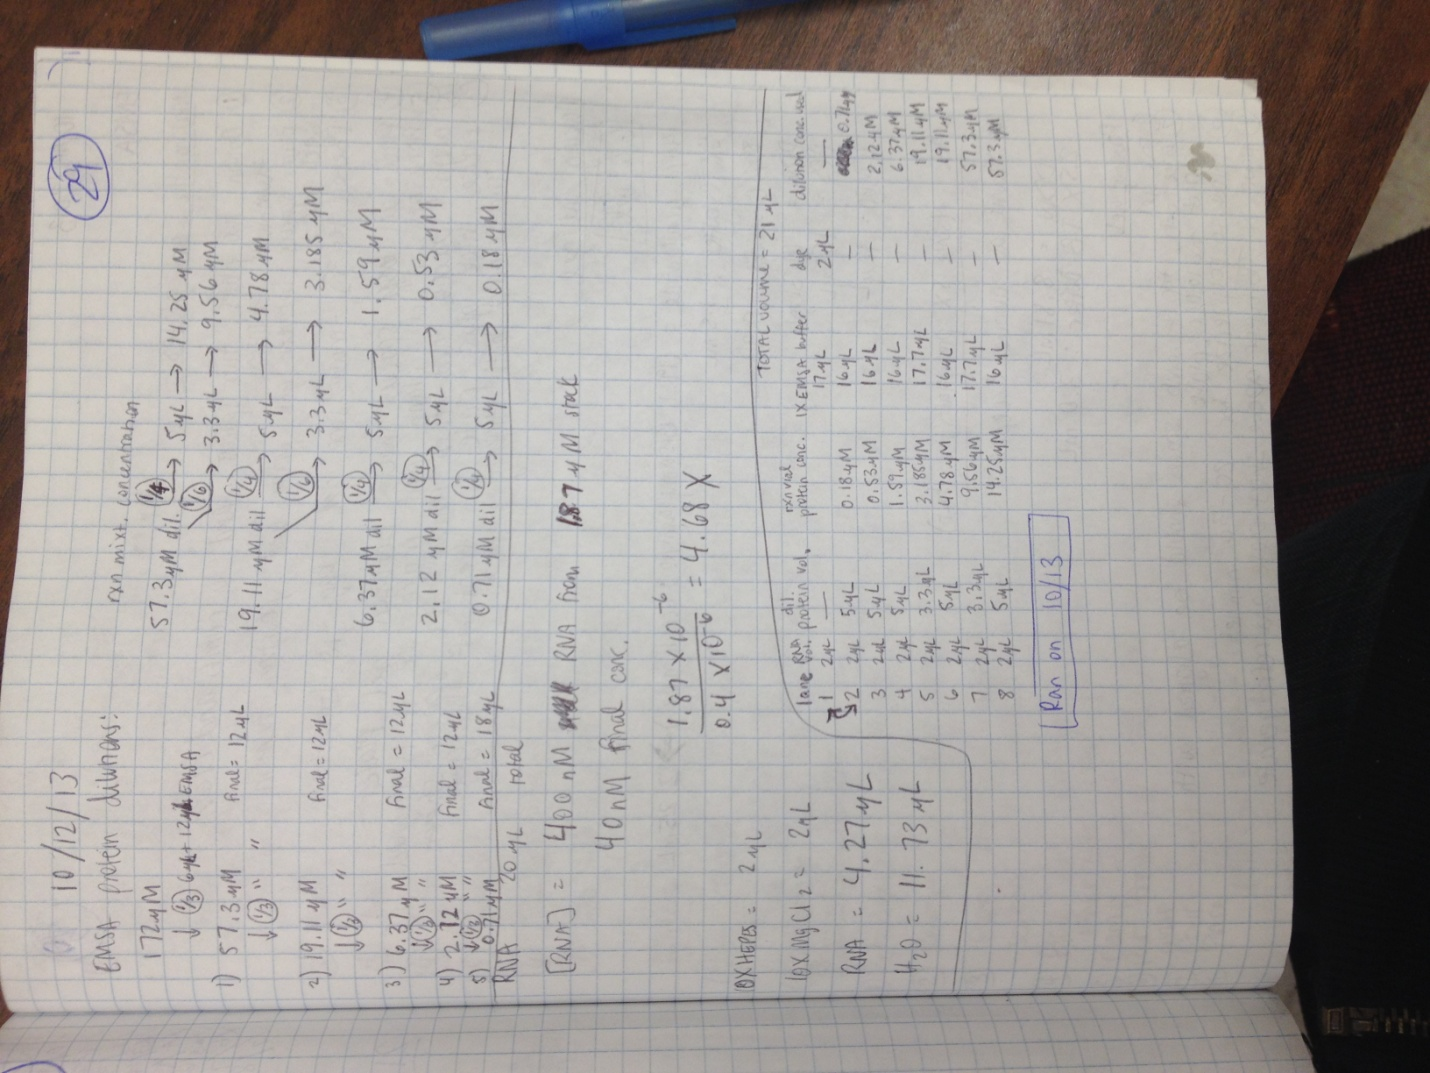 29
10/12/13
EMSA protein dilutions:
rxn mixt. concentration
172 µM
↓ (1/3) 6µL + 12µL EMSA
1) 57.3 µM final = 12 µL
↓ (1/3) "  "
2) 19.11 µM final = 12 µL
↓ (1/3) "
3) 6.37 µM final = 12 µL
↓ (1/3) "
4) 2.12 µM final = 12 µL
↓ (1/3) "  "
5) 0.71 µM final = 18 µL
57.3 µM dil. (1/4) → 5 µL → 14.25 µM
(1/6) → 3.3 µL → 9.56 µM
19.11 µM dil (1/4) → 5 µL → 4.78 µM
(1/6) → 3.3 µL → 3.185 µM
6.37 µM dil (1/4) → 5 µL → 1.59 µM
2.12 µM dil (1/4) → 5 µL → 0.53 µM
0.71 µM dil (1/4) → 5 µL → 0.18 µM
RNA 20 µL total
[RNA] = 400 nM RNA from 1.87 µM stock
40 nM final conc.
1.87 x 10⁻⁶
0.4 x 10⁻⁶ = 4.68 X
10X HEPES = 2 µL
10X MgCl₂ = 2 µL
RNA = 4.27 µL
H₂O = 11.73 µL
TOTAL VOLUME = 21 µL
lane RNA vol. dil. protein vol. rxn vial protein conc. 1X EMSA buffer dye dilution conc. used
1 2 µL — 17 µL 2 µL —
2 2 µL 5 µL 0.18 µM 16 µL — 0.71 µM
3 2 µL 5 µL 0.53 µM 16 µL — 2.12 µM
4 2 µL 5 µL 1.59 µM 16 µL — 6.37 µM
5 2 µL 3.3 µL 3.185 µM 17.7 µL — 19.11 µM
6 2 µL 5 µL 4.78 µM 16 µL — 19.11 µM
7 2 µL 3.3 µL 9.56 µM 17.7 µL — 57.3 µM
8 2 µL 5 µL 14.25 µM 16 µL — 57.3 µM
Ran on 10/13